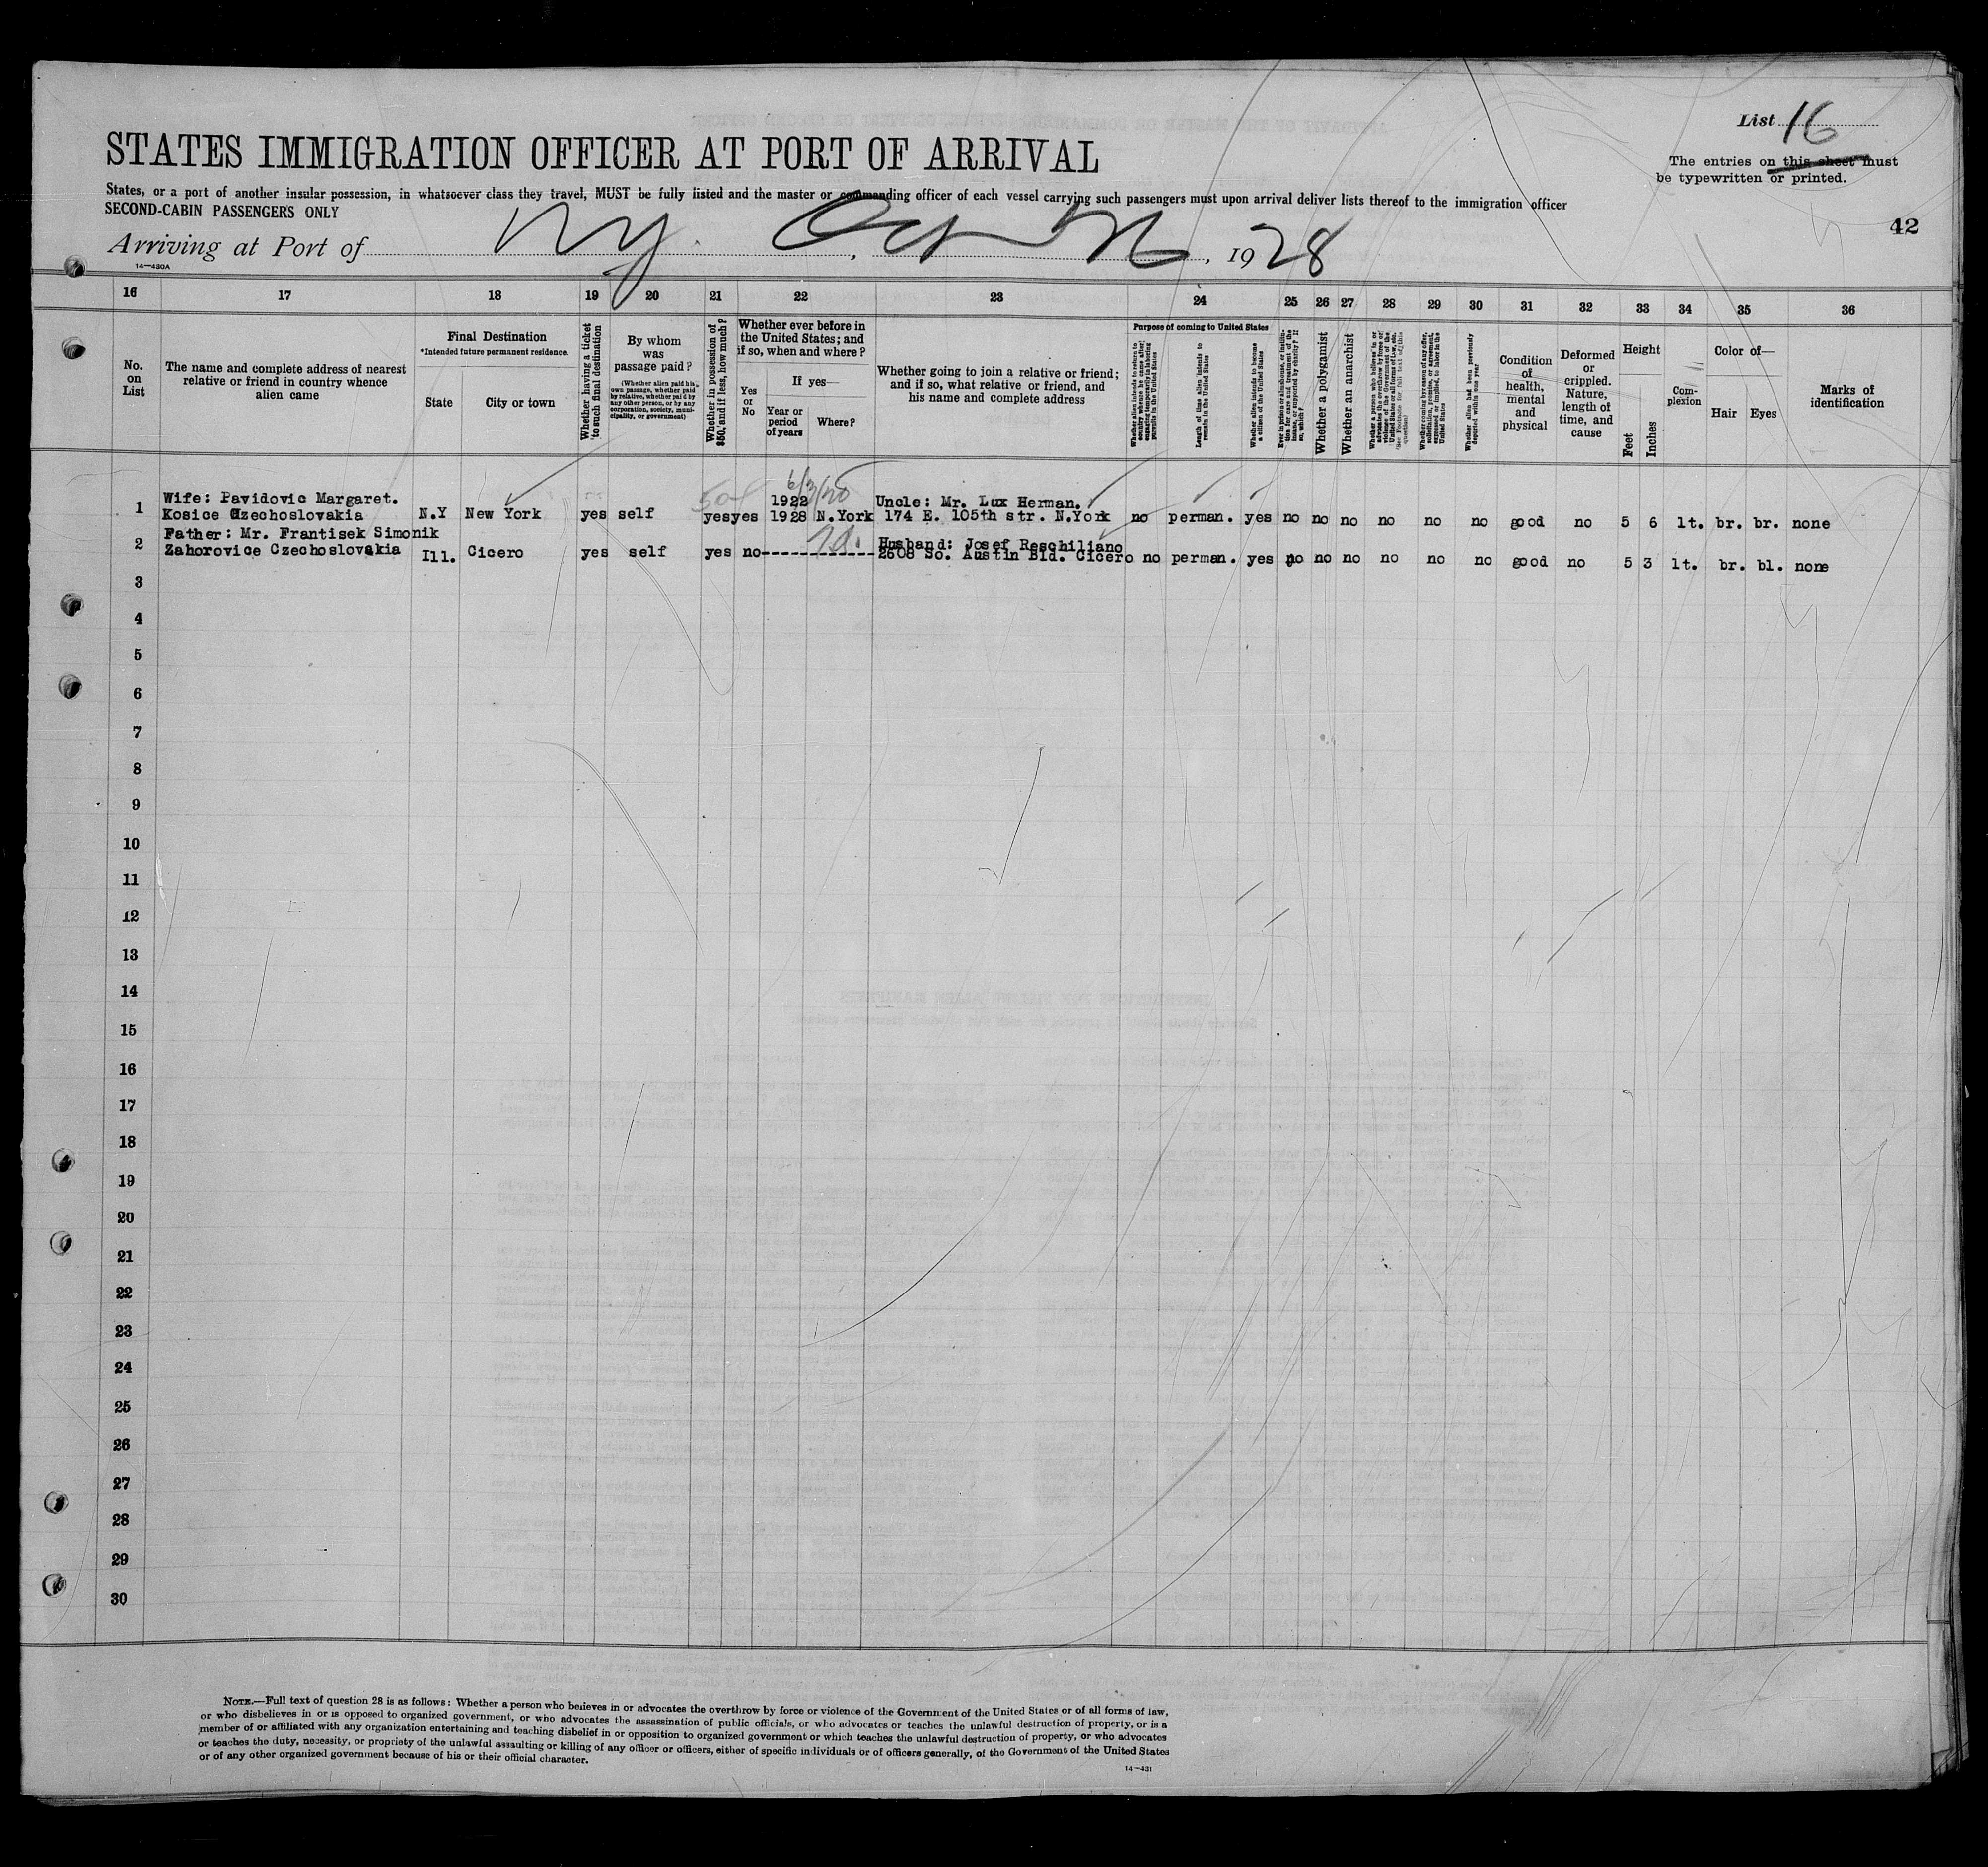 List 16
STATES IMMIGRATION OFFICER AT PORT OF ARRIVAL
The entries on this sheet must
be typewritten or printed.
States, or a port of another insular possession, in whatsoever class they travel, MUST be fully listed and the master or commanding officer of each vessel carrying such passengers must upon arrival deliver lists thereof to the immigration officer
SECOND-CABIN PASSENGERS ONLY
42
Arriving at Port of N.Y. , Oct 16 , 1928
14—430A
16 17 18 19 20 21 22 23 24 25 26 27 28 29 30 31 32 33 34 35 36
No.
on
List
The name and complete address of nearest
relative or friend in country whence
alien came
Final Destination
*Intended future permanent residence.
State
City or town
Whether having a ticket
to such final destination
By whom
was
passage paid?
(Whether alien paid his
own passage, whether paid
by relative, whether paid by
any other person, or by any
corporation, society, muni-
cipality, or government)
Whether in possession of
$50, and if less, how much?
Whether ever before in
the United States; and
if so, when and where?
Yes
or
No
If yes—
Year or
period
of years
Where?
Whether going to join a relative or friend;
and if so, what relative or friend, and
his name and complete address
Purpose of coming to United States
Whether alien intends to return to
country whence he came after
engaging temporarily in laboring
pursuits in the United States
Length of time alien intends to
remain in the United States
Whether alien intends to become
a citizen of the United States
Ever in prison or almshouse, or institu-
tion for care and treatment of the
insane, or supported by charity? If
so, which?
Whether a polygamist
Whether an anarchist
Whether alien had been previously
deported within one year
Condition
of
health,
mental
and
physical
Deformed
or
crippled.
Nature,
length of
time, and
cause
Height
Feet
Inches
Com-
plexion
Color of—
Hair
Eyes
Marks of
identification
6/3/20
50
1922
Wife: Pavidovic Margaret.
Uncle: Mr. Lux Herman.
1 Kosice Czechoslovakia N.Y New York yes self yes yes 1928 N.York 174 E. 105th str. N.York no perman. yes no no no no no no good no 5 6 lt. br. br. none
Father: Mr. Frantisek Simonik
Husband: Josef Reschiliano
2 Zahorovice Czechoslovakia Ill. Cicero yes self yes no------------ 2608 So. Austin Bld. Cicero no perman. yes no no no no no no good no 5 3 lt. br. bl. none
3
4
5
6
7
8
9
10
11
12
13
14
15
16
17
18
19
20
21
22
23
24
25
26
27
28
29
30
NOTE.—Full text of question 28 is as follows: Whether a person who believes in or advocates the overthrow by force or violence of the Government of the United States or of all forms of law,
or who disbelieves in or is opposed to organized government, or who advocates the assassination of public officials, or who advocates or teaches the unlawful destruction of property, or is a
member of or affiliated with any organization entertaining and teaching disbelief in or opposition to organized government or which teaches the unlawful destruction of property, or who advocates
or teaches the duty, necessity, or propriety of the unlawful assaulting or killing of any officer or officers, either of specific individuals or of officers generally, of the Government of the United States
or of any other organized government because of his or their official character.
14—431